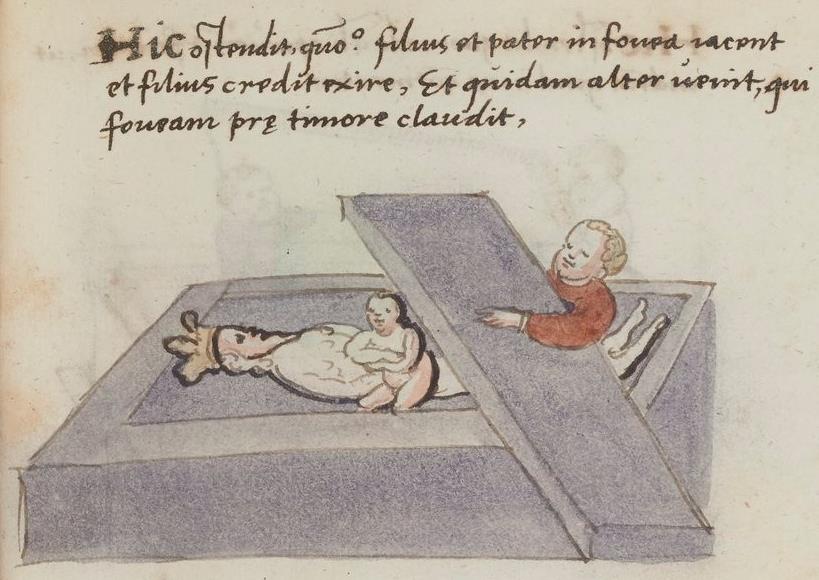 Hic oſtendit, quō° filius et pater in fovea iacent
et filius credit exire, Et quidam alter venit, qui
foveam prę timore claudit,